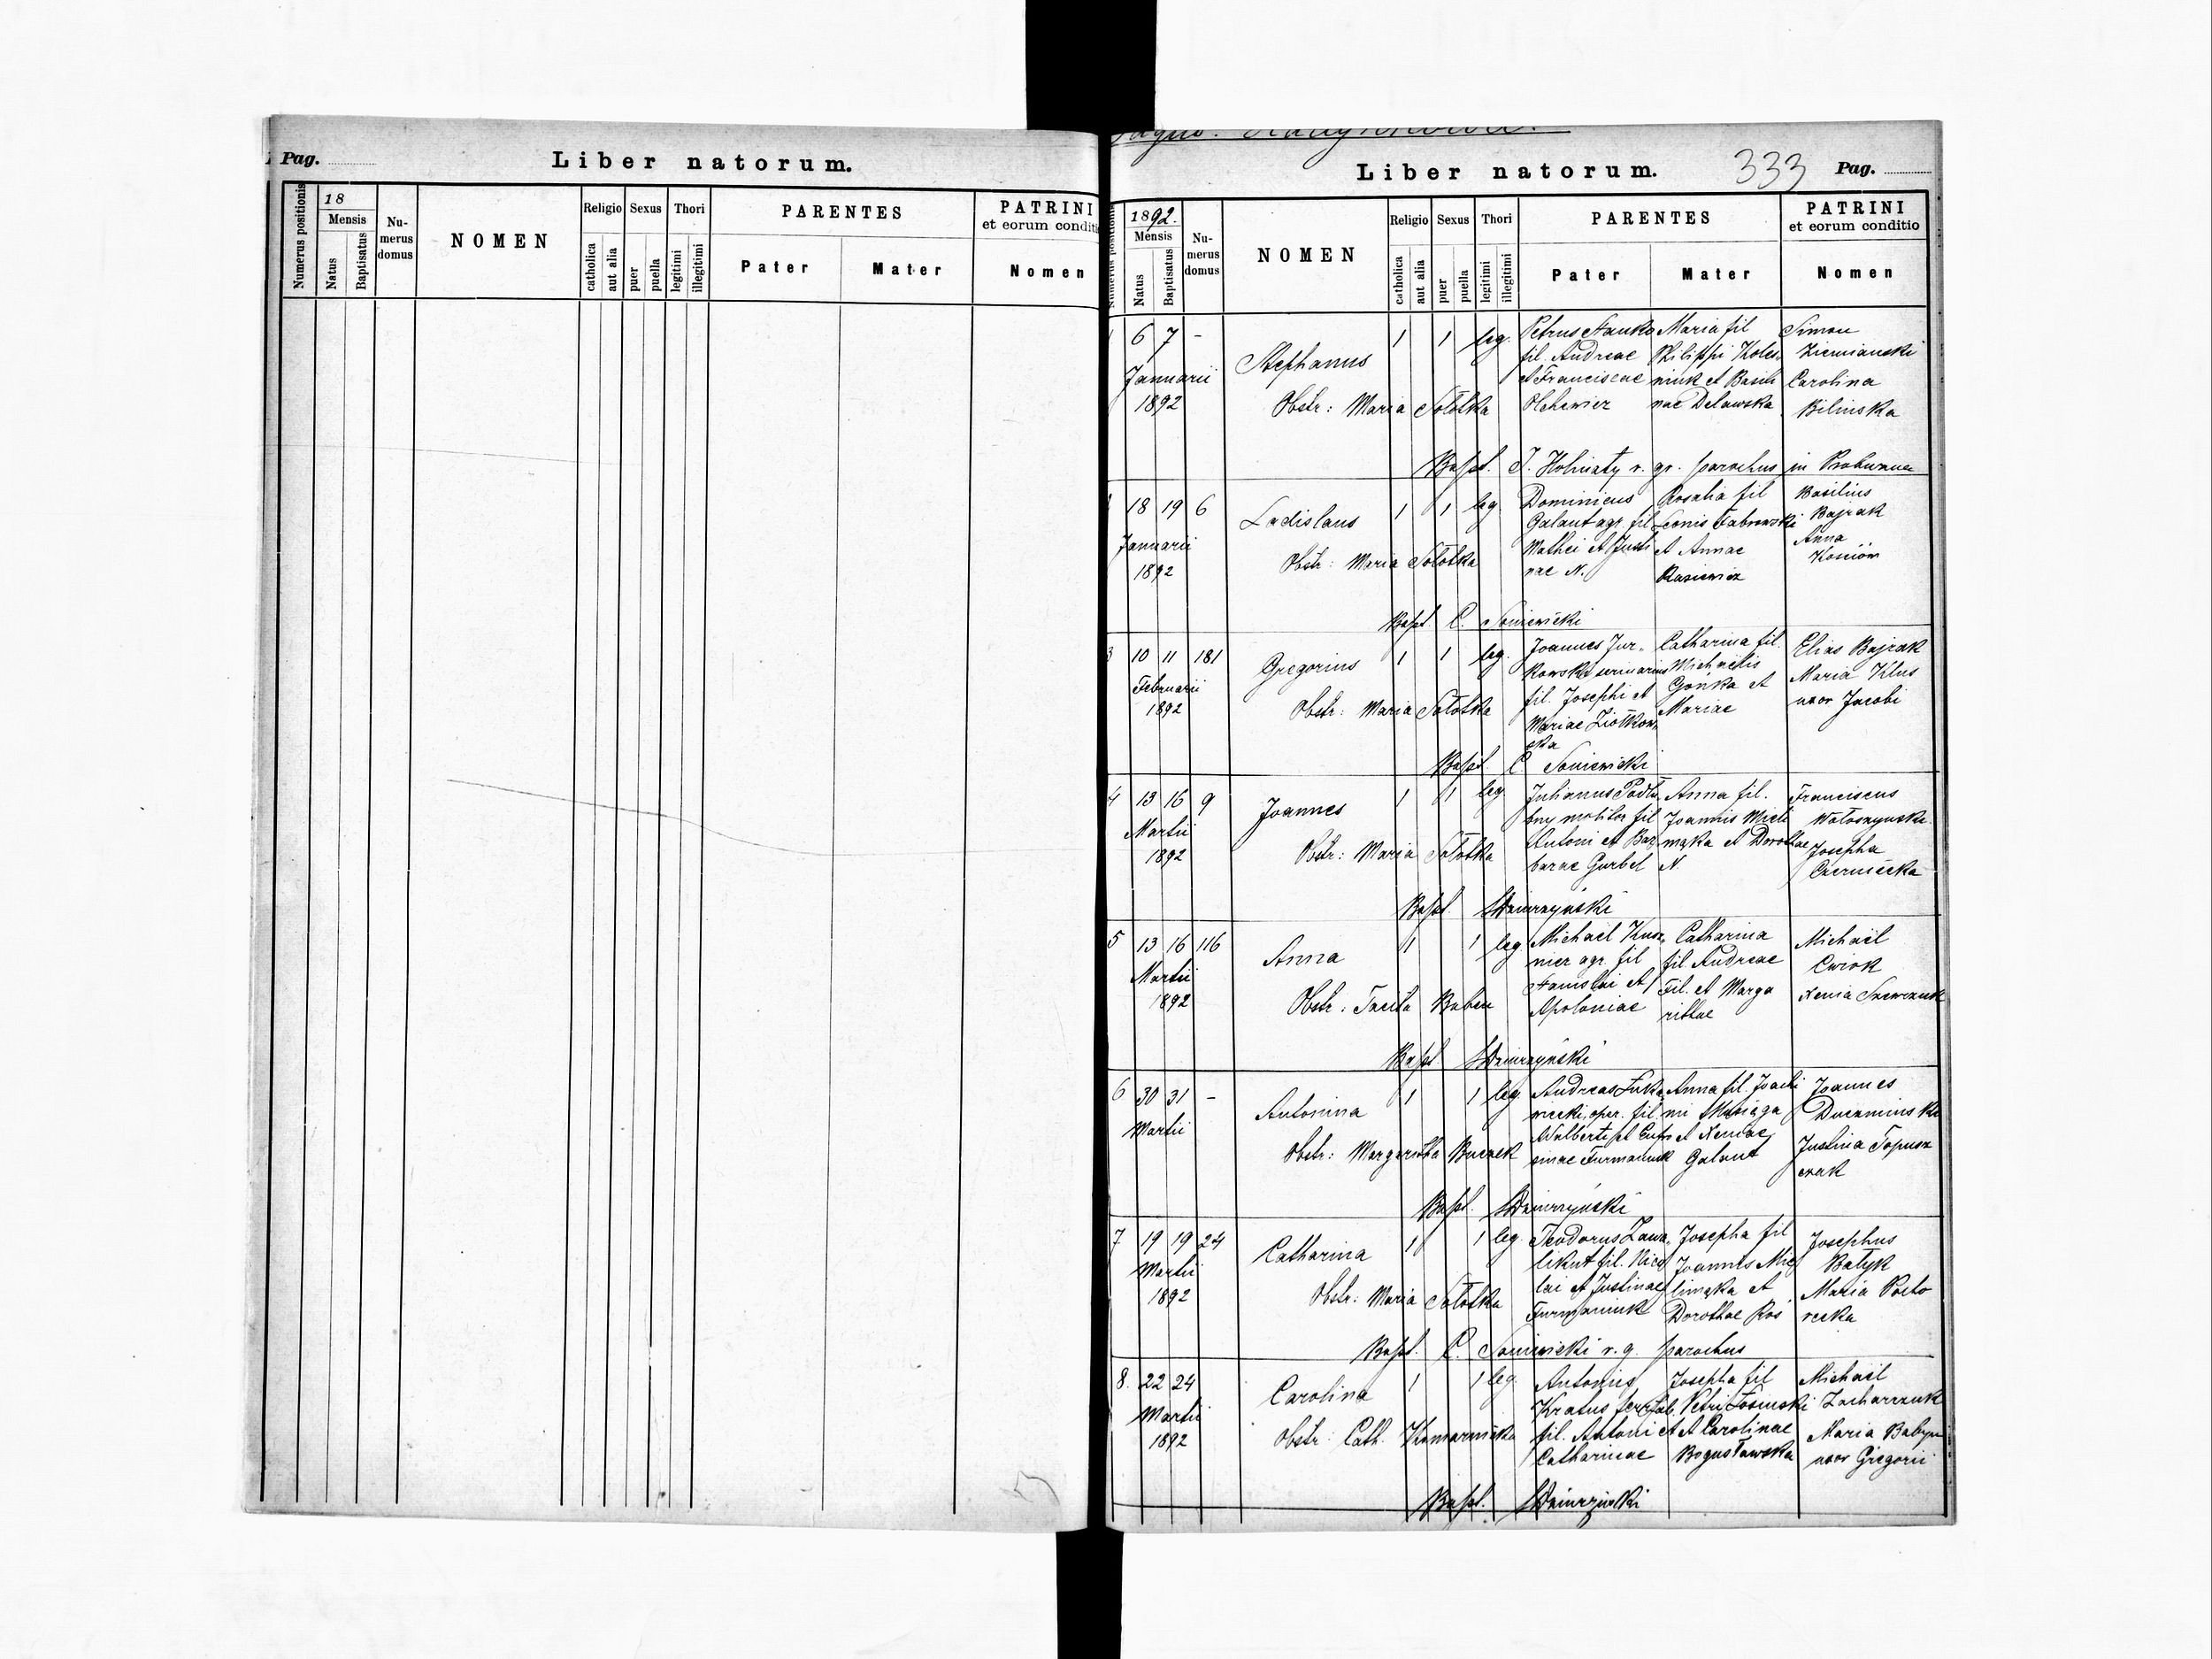 Pag.
Liber natorum.
Numerus positionis
18
Mensis
Natus
Baptisatus
Nu-
merus
domus
NOMEN
Religio
catholica
aut alia
Sexus
puer
puella
Thori
legitimi
illegitimi
PARENTES
Pater
Mater
PATRINI
et eorum conditi
Nomen
Liber natorum.
333
Pag.
Numerus positionis
1892.
Mensis
Natus
Baptisatus
Nu-
merus
domus
NOMEN
Religio
catholica
aut alia
Sexus
puer
puella
Thori
legitimi
illegitimi
PARENTES
Pater
Mater
PATRINI
et eorum conditio
Nomen
6 7 -
Januarii
1892
Stephanus
1 1 leg.
Obstr: Maria Sołotka
Petrus Hauka
fil. Andreae
et Franciscae
Maria fil
Philippi Koles
niuk et Basili
nae Delawska
Simon
Ziemianski
Carolina
Bilinska
Bapt. T. Holinaty r. gr. parochus in Probuzna
18 19 6
Januarii
1892
Ladislaus
1 1 leg
Obstr: Maria Sołotka
Dominicus
Galant agr. fil
Mathei et Justi
nae N.
Rosalia fil
et Annae
Rasiewicz
Basilius
Bajrak
Anna
Bapt. C. Soniewicki
3 10 11 181
Februarii
1892
Gregorius
1 1 leg.
Obstr: Maria Sołotka
Joannes Jur-
kowski
fil. Josephi et
Mariae Ziółkow
ska
Catharina fil.
Michaelis
Gorka et
Mariae
Elias Bajrak
Maria Klus
uxor Jacobi
Bapt. C Soniewicki
4 13 16 9
Martii
1892
Joannes
1 1 leg
Obstr: Maria Sołotka
Julianus Podłu
bny molitor fil
Antoni et Bar
barae Gurbel
Anna fil.
Joannis Mieli
mąka et Dorotheae
N.
Franciscus
Wołoszynski
Josepha
Czernicka
Bapt. Dziurzyński
5 13 16 116
Martii
1892
Anna
1 1 leg
Obstr: Tacita Baben
Michael Kusz
nier agr. fil
Stanislai et
Apoloniae
Catharina
fil. Andreae
Fil. et Marga
rittae
Michaël
Cwiok
Xenia Szewczuk
Bapt. Dziurzyński
6 30 31 -
Martii
Antonina
1 1 leg
Obstr: Margaritha Buczek
Andreas Łuka
wecki, oper. fil.
Adalberti et Eufro
sinae Furmaniuk
Anna fil. Joachi
mi
et Xeniae
Galant
Joannes
Duczminski
Justina Topusz
czak
Bapt. Dziurzyński
7 19 19 24
Martii
1892
Catharina
1 1 leg.
Obstr: Maria Sołotka
Teodorus Zawa-
likut fil. Nico
lai et Justinae
Furmaniuk
Josepha fil
Joannis Mie
limąka et
Dorotheae Ros
Josephus
Bałyk
Maria Poto
recka
Bapt. C. Soniewicki r. g. parochus
8. 22 24
Martii
1892
Carolina
1 1 leg.
Obstr: Cath. Komarnicka
Antonius
Kratus
fil. Antoni et
Catharinae
Josepha fil
Petri Łosinski
et Carolinae
Bogusławska
Michaël
Zacharczuk
Maria Babyn
uxor Gregorii
Bapt. Dziurzyński